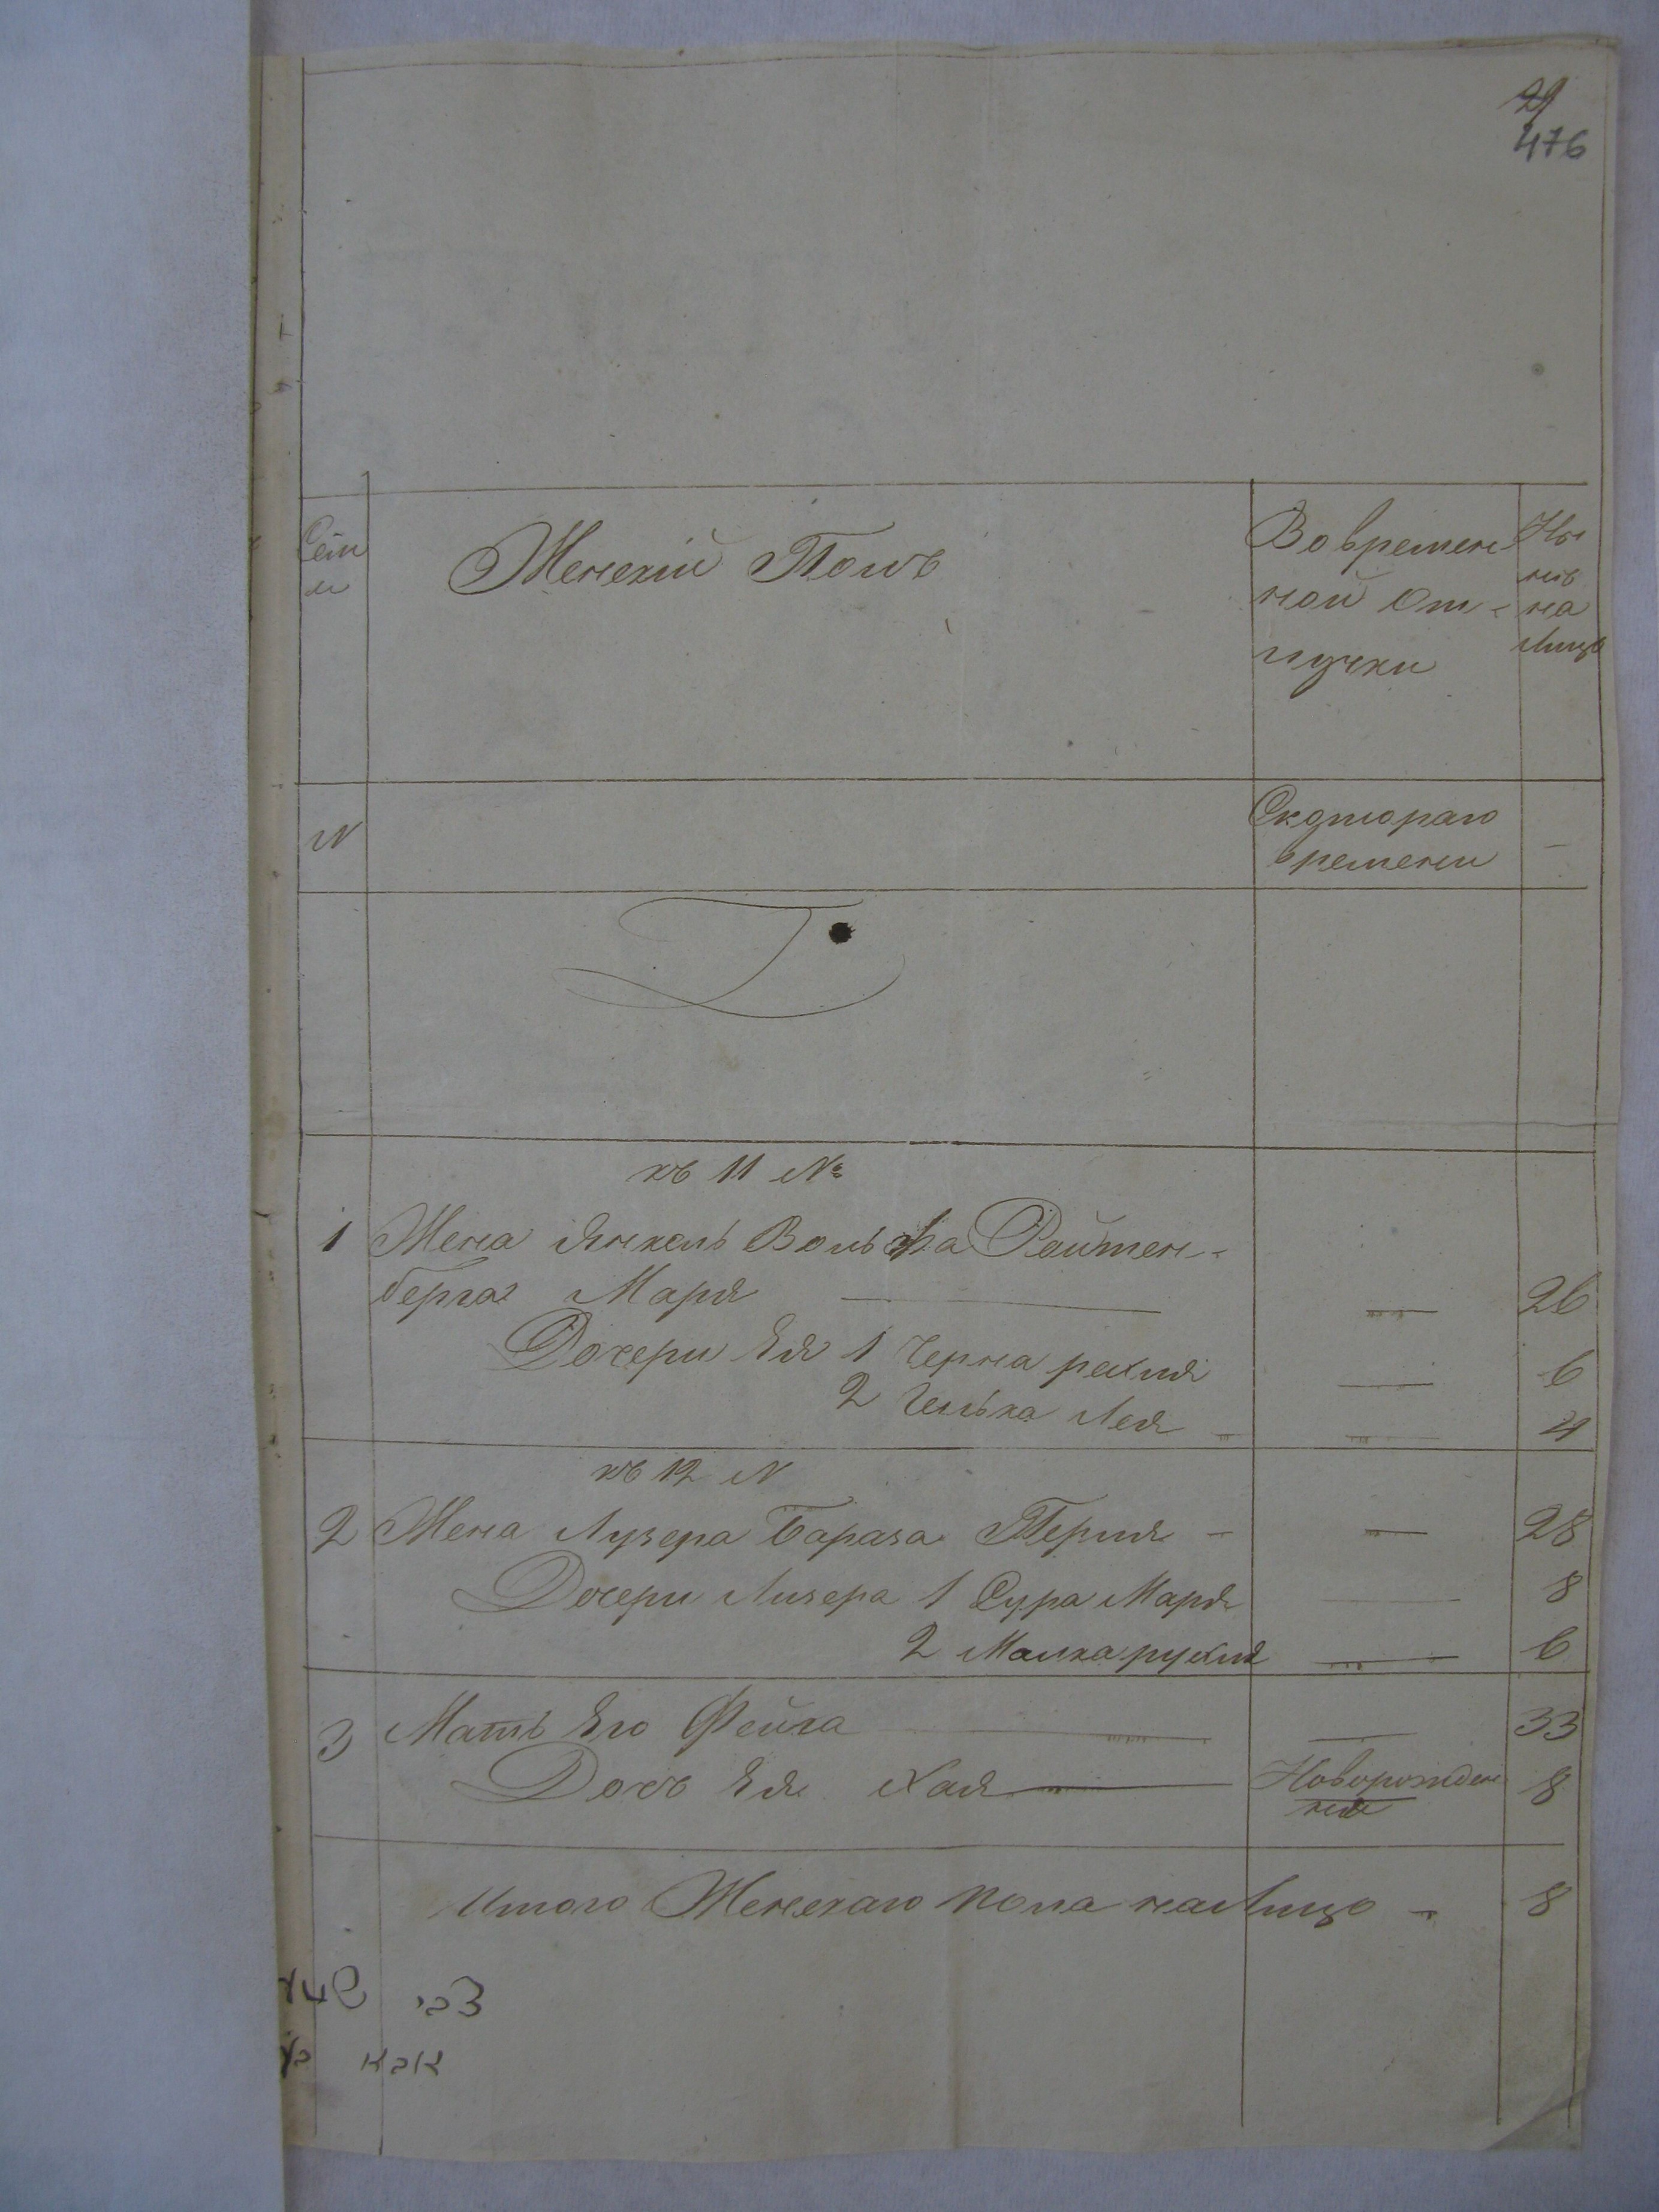 29
476
Семи
Женскій Полъ
Во времен
ной от-
лучки
Ны
нѣ
на
лицо
N
Скотораго
времени
-
Г
къ 11 №
1 Жена Янкель Вольфа Ройтен-
берга Маря — — 26
Дочери Ея 1 Черна рехля — 6
2 Гелька Лея — — 4
къ 12 N
2 Жена Лузера Бараза Перля - — 28
Дочери Лизера 1 Сура Маря — 8
2 Малка рухля — 6
3 Мать Его Фейга — — 33
Дочь Ея Хая — Новорожден 8
ная
Итого Женскаго пола налицо - 8
צבי
אבא